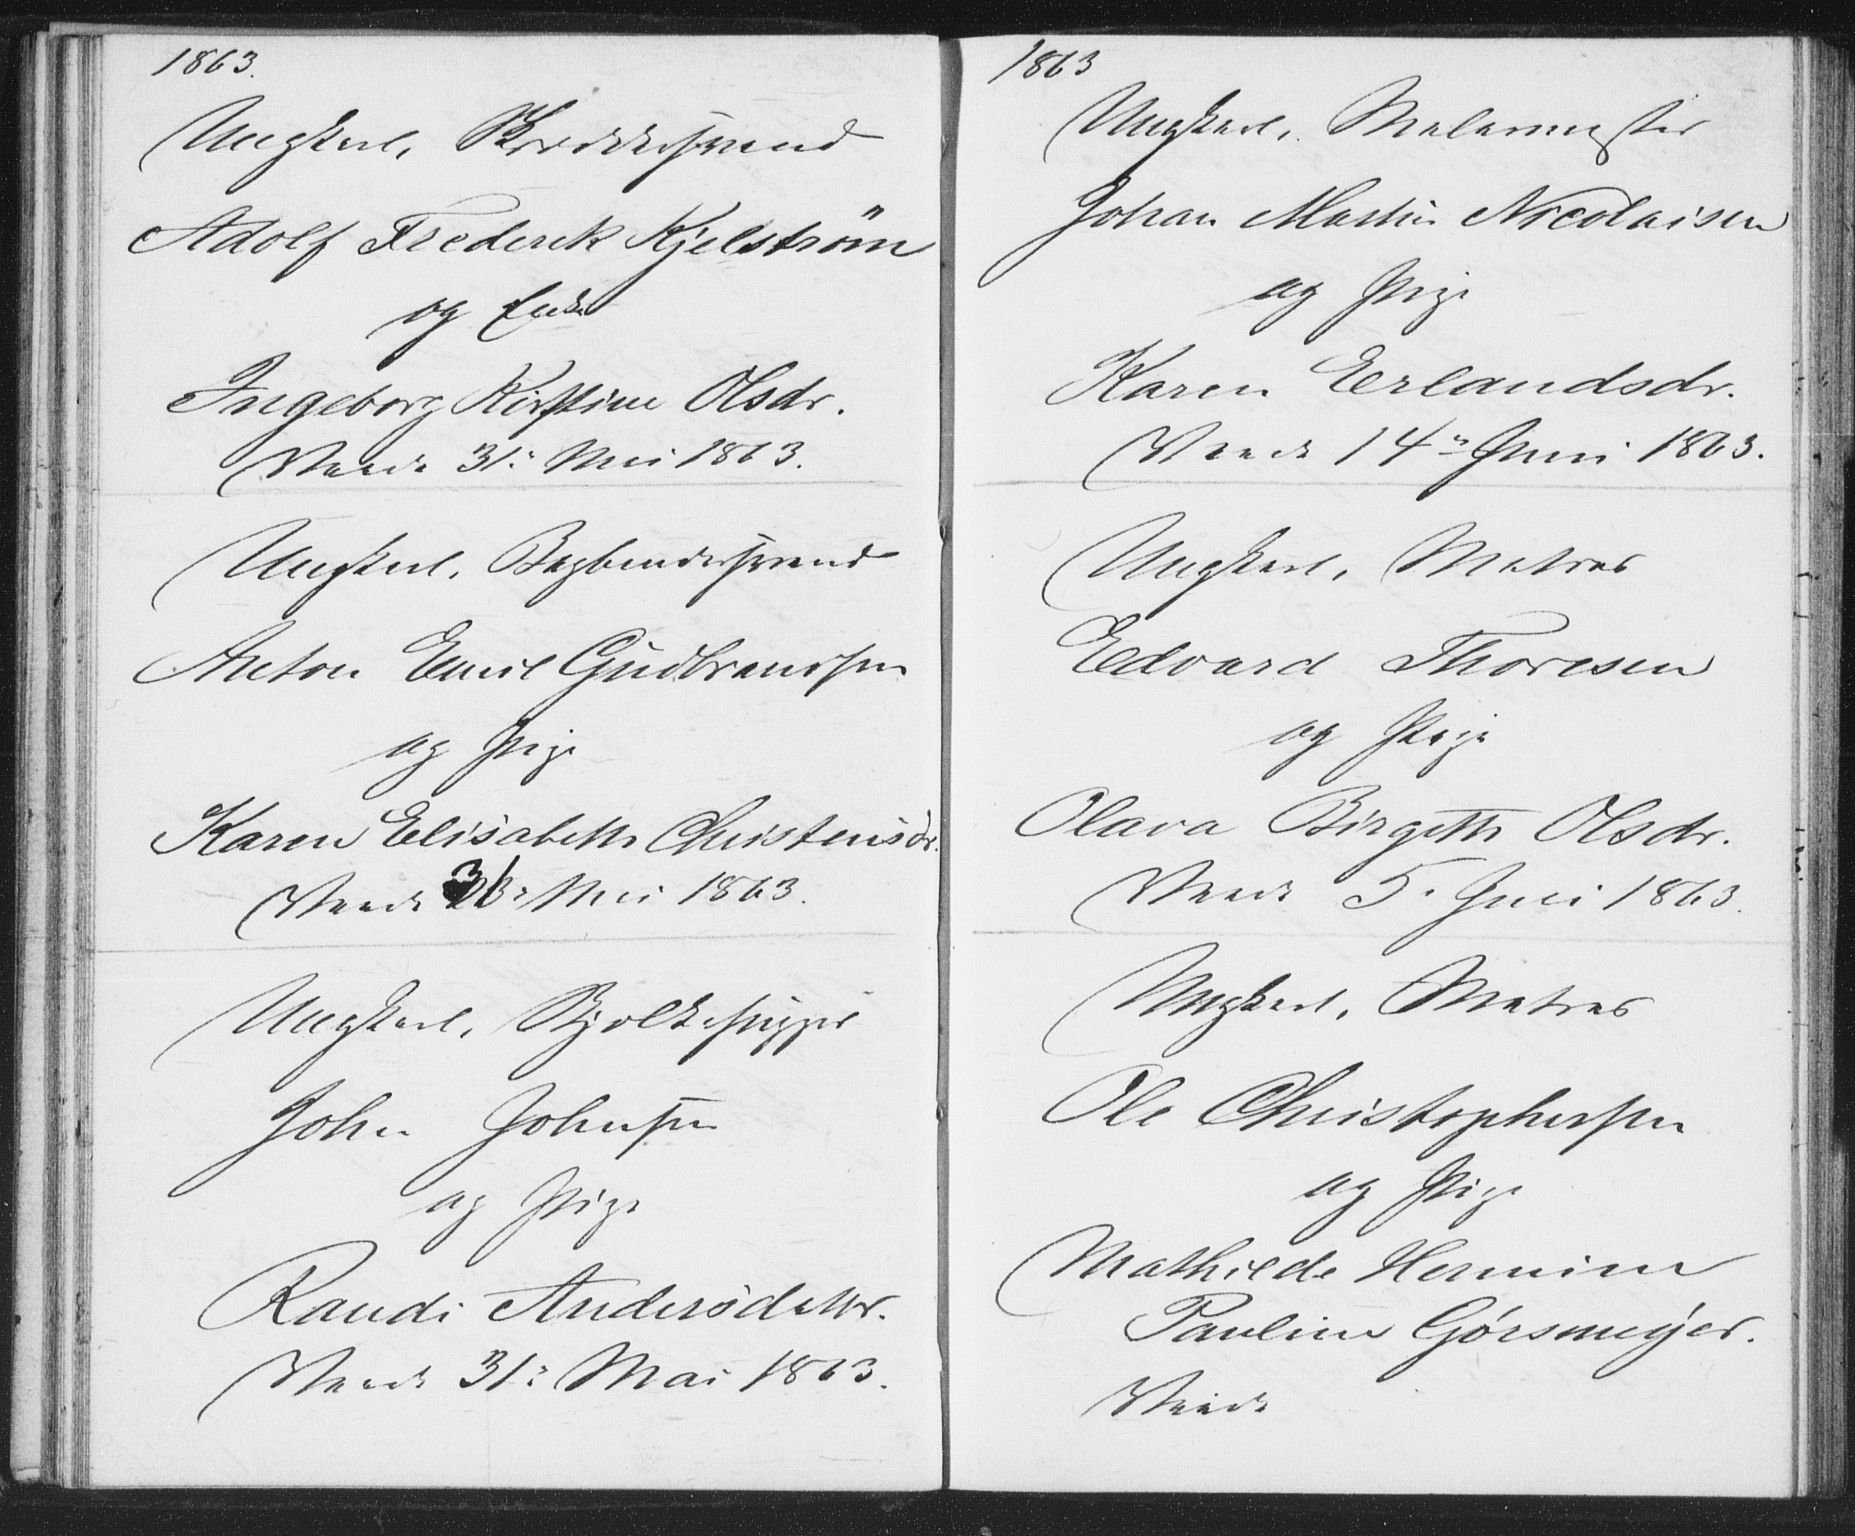 1863.
Ungkarl, Skrædersvend
Adolf Frederik Kjelström
og Enke
Ingeborg Kirstine Olsdr.
Viede 31: Mai 1863.
Ungkarl, Bogbindersvend
Anton Emil Gudbrandsen
og Pige
Karen Elisabeth Christensdr.
Viede 31: Mai 1863.
Ungkarl, Bjelkehugger
John Johnsen
og Pige
Randi Andersdatter.
Viede 31: Mai 1863.
1863
Ungkarl, Malermester
Johan Martin Nicolaisen
og Pige
Karen Erlandsdr.
Viede 14: Juni 1863.
Ungkarl, Matros
Edvard Thoresen
og Pige
Olava Birgitte Olsdr.
Viede 5: Juli 1863.
Ungkarl, Matros
Ole Christophersen
og Pige
Mathilde Hermine
Pauline Görsmeÿer.
Viede